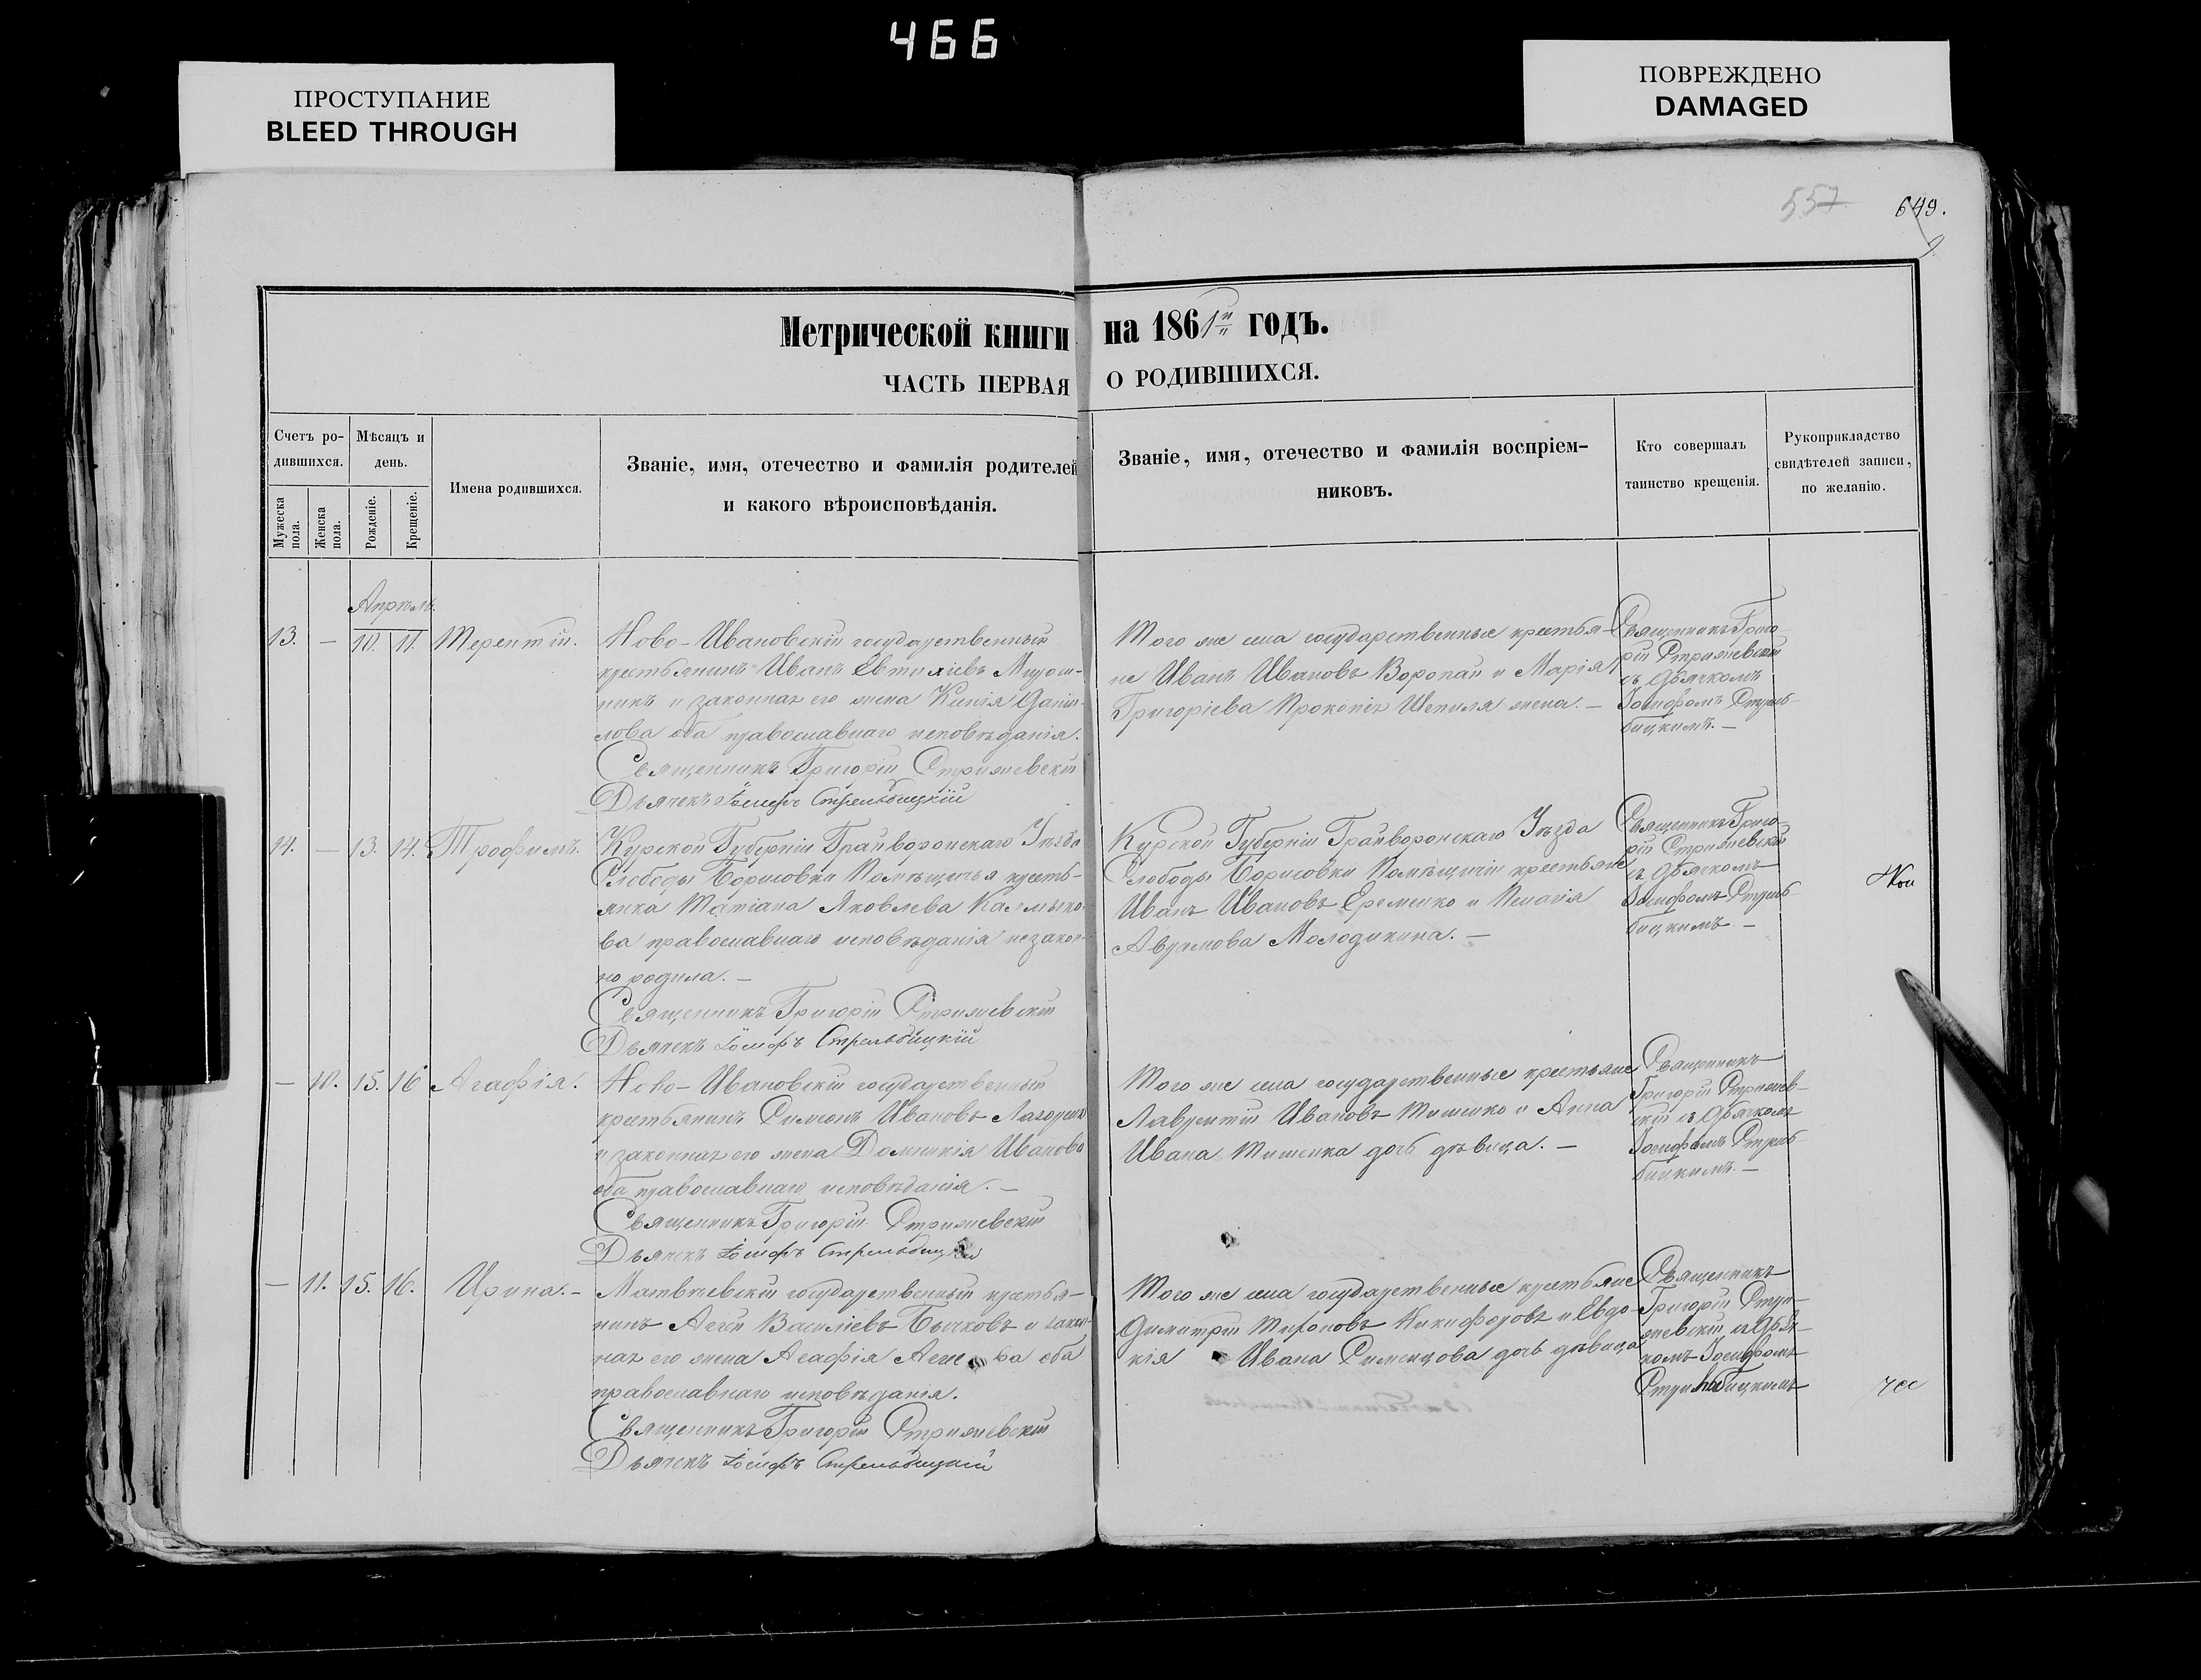 466
ПРОСТУПАНИЕ
BLEED THROUGH
ПОВРЕЖДЕНО
DAMAGED
557
649.
Метрической книги на 1861й годъ.
ЧАСТЬ ПЕРВАЯ О РОДИВШИХСЯ.
Счетъ ро-
дившихся.
Мужеска пола.
Женска пола.
Мѣсяцъ и
день.
Рожденіе.
Крещеніе.
Имена родившихся.
Званіе, имя, отечество и фамилія родителей
и какого вѣроисповѣданія.
Званіе, имя, отечество и фамилія воспріем-
никовъ.
Кто совершалъ
таинство крещенія.
Рукоприкладство
свидѣтелей записи,
по желанію.
Апрѣль.
13. — 10. 11. Терентій.
Ново-Ивановскій государственный
крестьянинъ Иванъ Евтихіевъ Мирош-
никъ и законная его жена Ксенія Даніи-
лова оба православнаго исповѣданія.
Священникъ Григорій Стрижевскій
Дьячекъ Іосифъ Стрельбицкій
Того же села государственные крестья-
не Иванъ Ивановъ Воропай и Марія
Григоріева Прокопія Шепиля жена. —
Священникъ Григо-
рій Стрижевскій
съ дьячкомъ
Іосифомъ Стрель-
бицкимъ. —
14. — 13. 14. Трофимъ.
Курской Губерніи Грайворонскаго Уѣзда
Слободы Борисовки Помѣщичья кресть-
янка Татіана Яковлева Калмыко-
ва православнаго исповѣданія незакон-
но родила. —
Священникъ Григорій Стрижевскій
Дьячекъ Іосифъ Стрельбицкій
Курской Губерніи Грайворонскаго Уѣзда
Слободы Борисовки Помѣщичіи крестьяне
Иванъ Ивановъ Еременко и Пелагія
Аврамова Молодикина. —
Священникъ Григо-
рій Стрижевскій
съ дьячкомъ
Іосифомъ Стрель-
бицкимъ. —
— 10. 15. 16 Агафія.
Ново-Ивановскій государственный
крестьянинъ Симеонъ Ивановъ
и законная его жена Домникія Иванова
оба православнаго исповѣданія. —
Священникъ Григорій Стрижевскій
Дьячекъ Іосифъ Стрельбицкій
Того же села государственные крестьяне
Лаврентій Ивановъ Тишенко и Анна
Ивана Тишенка дочь дѣвица. —
Священникъ
Григорій Стрижев-
скій съ дьячкомъ
Іосифомъ Стрель-
бицкимъ. —
— 11. 15. 16. Ирина. —
Матвѣевскій государственный кресть-
нинъ Агей Василіевъ Бычковъ и закон-
ная его жена Агафія оба
православнаго исповѣданія.
Священникъ Григорій Стрижевскій
Дьячекъ Іосифъ Стрельбицкій
Того же села государственные крестьяне
Димитрій Мироновъ Никифоровъ и Евдо-
кія Ивана дочь дѣвица
Священникъ
Григорій Стри-
жевскій съ дьяч-
комъ Іосифомъ
Стрельбицкимъ